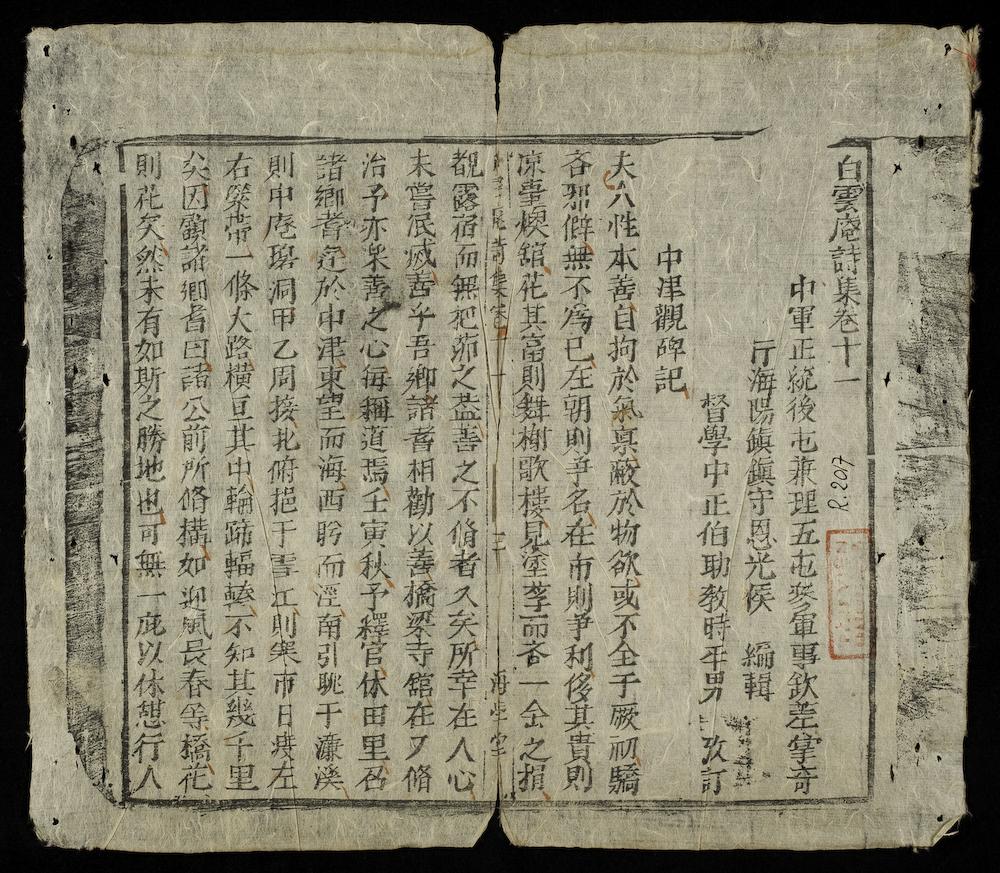 白雲庵詩集卷十一
中軍正統後屯兼理五屯叅軍事欽差掌奇
海陽鎮鎮守恩光侯 編輯
督學中正伯助教時平男 攷訂
中津觀碑記
夫人性本善自拘於氣禀蔽於物欲或不全于厥初驕
吝邪僻無不為已在朝則爭名在市則爭利侈其貴則
凉臺煥舘花其富則舞榭歌楼見塗莩而吝一金之捐
覩露宿而無把茆之盖善之不脩者久矣所幸在人心
未嘗泯滅善乎吾鄉諸耆相勸以善橋梁寺舘在又脩
治予亦樂善之心每稱道焉壬寅秋予釋官休田里召
諸鄉耆逰於中津東望而海西盻而涇南引眺于濂溪
則中庵碧洞甲乙周接北俯挹于雪江則寒市日與左
右縈帶一條大路横亘其中輪蹄輻輳不知其幾千里
矣因顧諸鄉耆曰諸公前所脩構如迎風長春等橋花
則花矣然未有如斯之勝地也可無一庇以休憇行人
海學堂
R.207